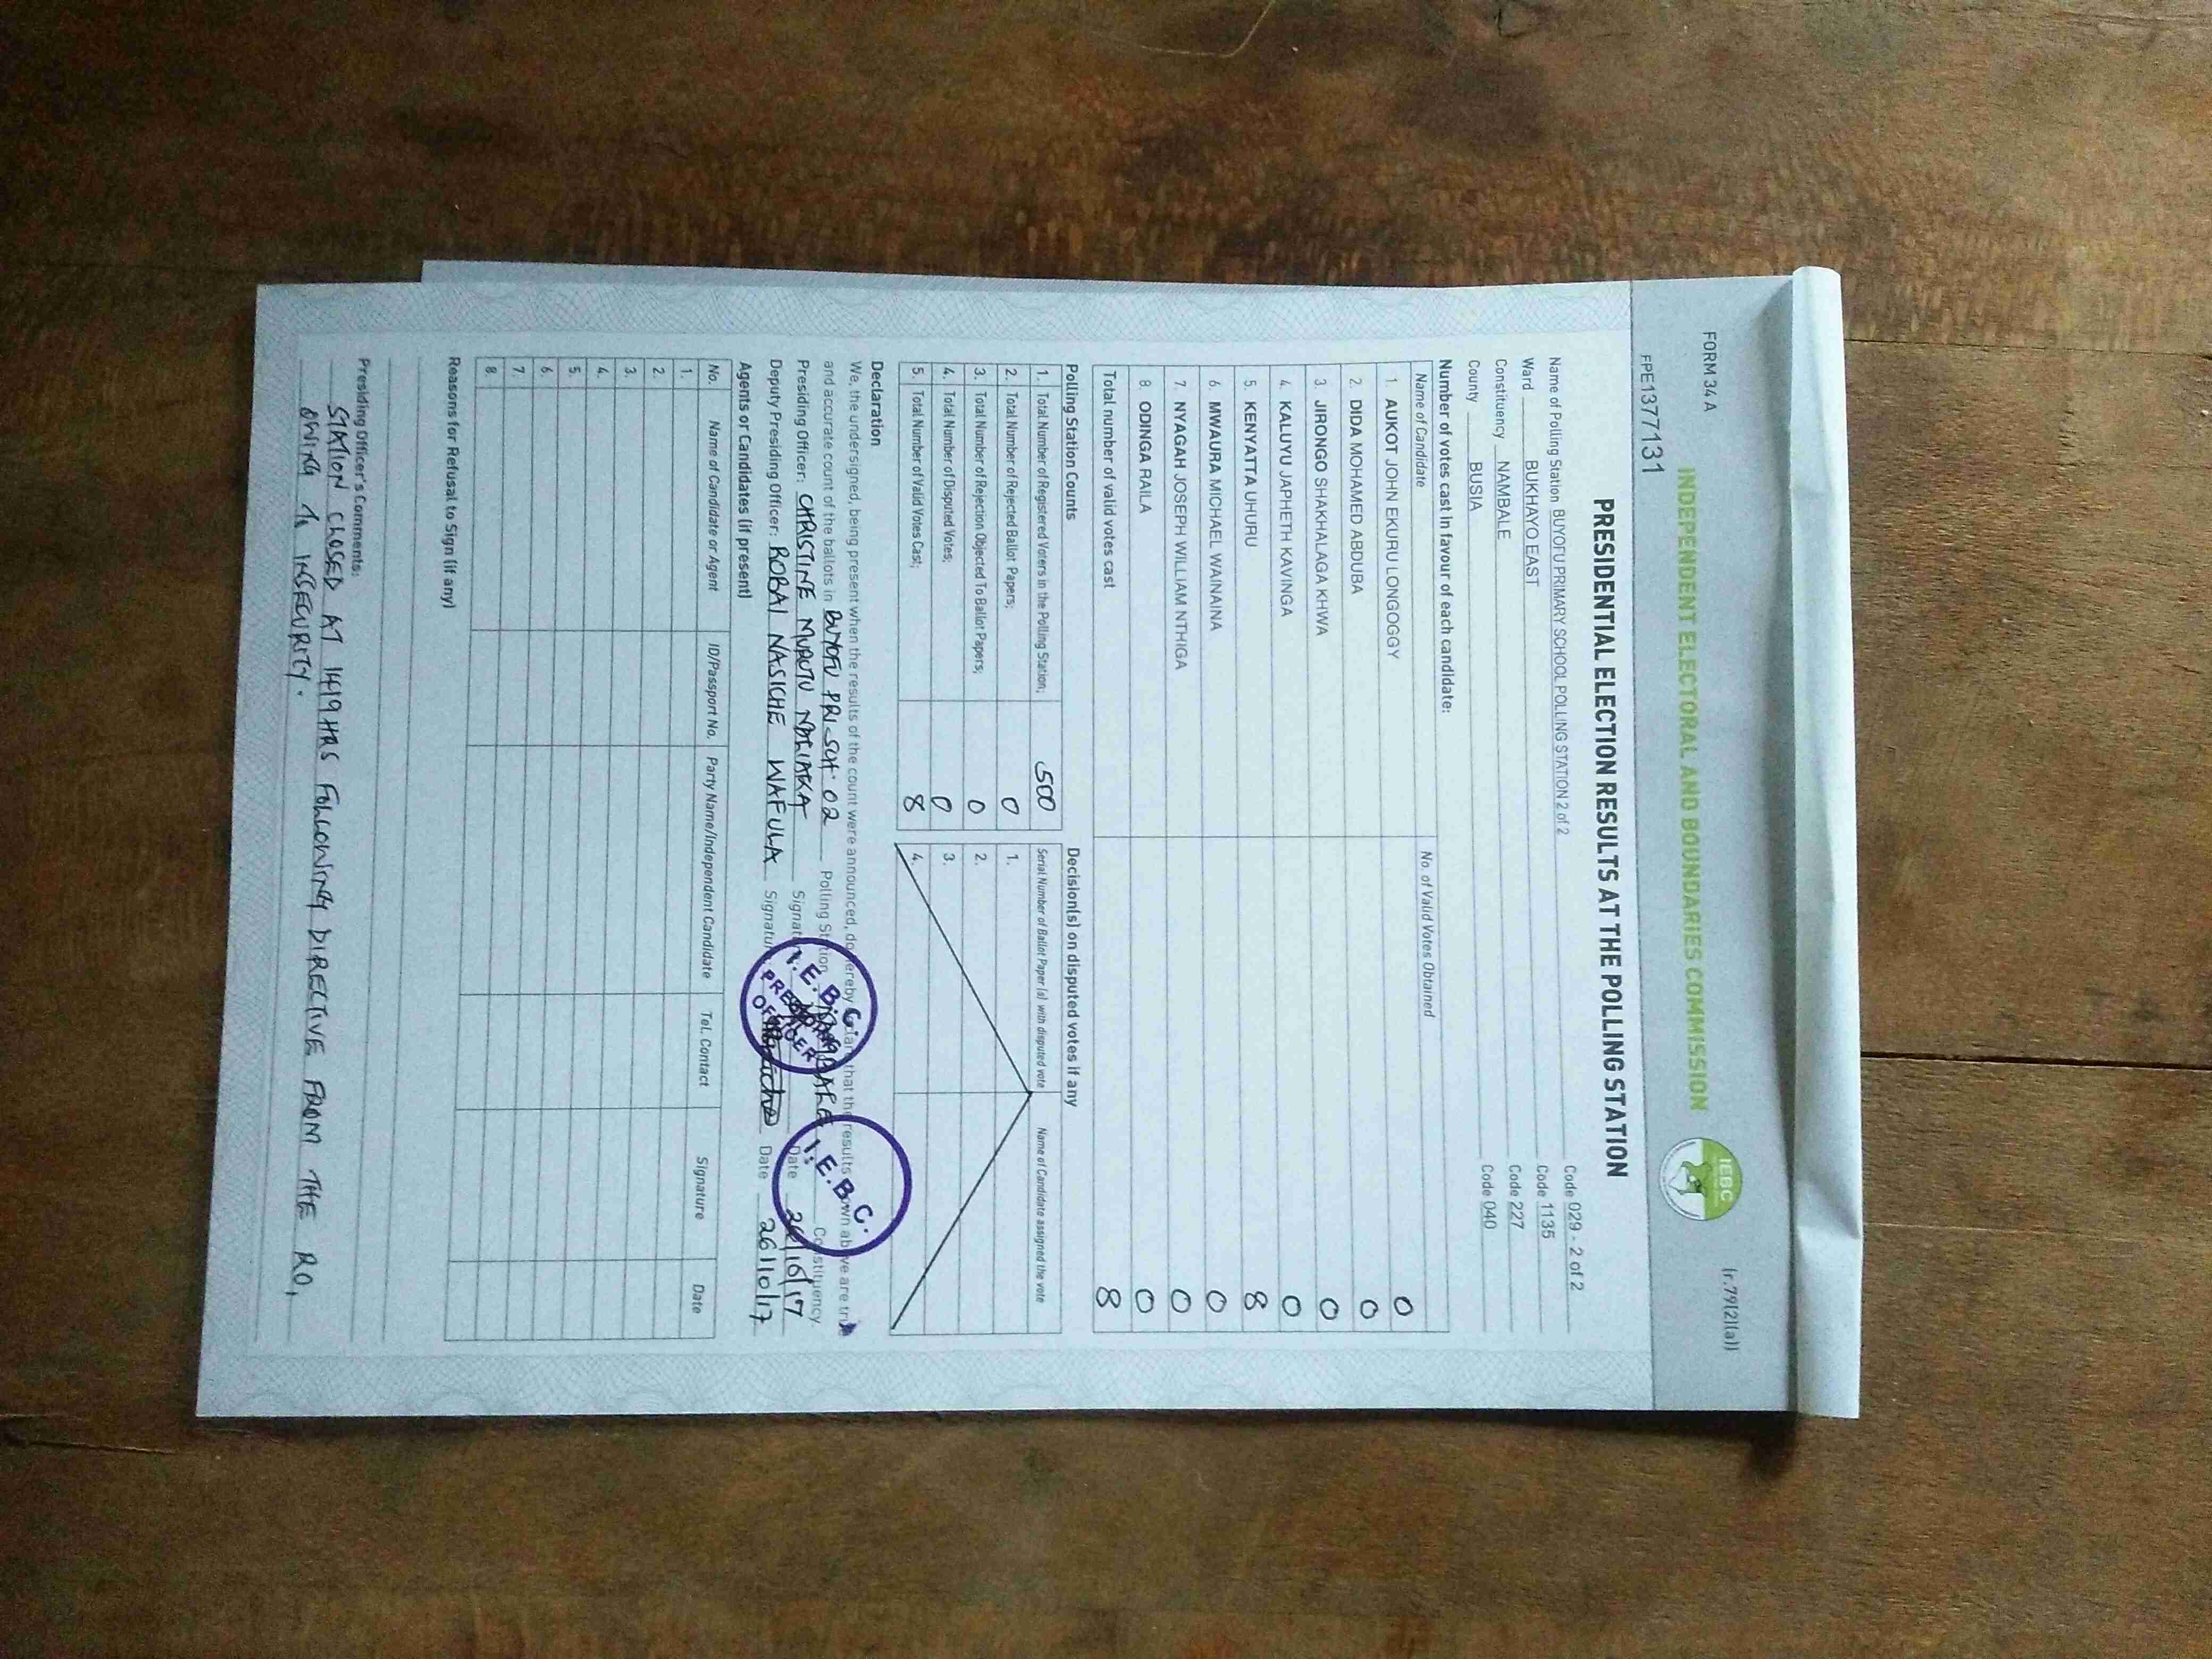 FORM 34 A
(r.79(2)(a))
INDEPENDENT ELECTORAL AND BOUNDARIES COMMISSION
IEBC
FPE1377131
PRESIDENTIAL ELECTION RESULTS AT THE POLLING STATION
Name of Polling Station BUYOFU PRIMARY SCHOOL POLLING STATION 2 of 2 Code 029 - 2 of 2
Ward BUKHAYO EAST Code 1135
Constituency NAMBALE Code 227
County BUSIA Code 040
Number of votes cast in favour of each candidate:
Name of Candidate No. of Valid Votes Obtained
1. AUKOT JOHN EKURU LONGOGGY 0
2. DIDA MOHAMED ABDUBA 0
3. JIRONGO SHAKHALAGA KHWA 0
4. KALUYU JAPHETH KAVINGA 0
5 KENYATTA UHURU 8
6 MWAURA MICHAEL WAINAINA 0
7. NYAGAH JOSEPH WILLIAM NTHIGA 0
8 ODINGA RAILA 0
Total number of valid votes cast 8
Polling Station Counts
1. Total Number of Registered Voters in the Polling Station; 500
2. Total Number of Rejected Ballot Papers; 0
3. Total Number of Rejection Objected To Ballot Papers; 0
4. Total Number of Disputed Votes; 0
5. Total Number of Valid Votes Cast; 8
Decision(s) on disputed votes if any
Serial Number of Ballot Paper (s) with disputed vote Name of Candidate assigned the vote
1.
2.
3.
4.
Declaration
We, the undersigned, being present when the results of the count were announced, do hereby that the results own above are true
and accurate count of the ballots in BUYOFU PRI SCH 02 Polling Station NAMBALE Constituency.
Presiding Officer: CHRISTINE Signature Date 26/10/17
Deputy Presiding Officer: ROBAI NASICHE WAFULA Signature Date 26/10/17
I.E.B.C. PRESIDING OFFICER
I.E.B.C.
Agents or Candidates (if present)
No. Name of Candidate or Agent ID/Passport No. Party Name/Independent Candidate Tel. Contact Signature Date
1.
2.
3.
4.
5.
6.
7.
8.
Reasons for Refusal to Sign (if any)
Presiding Officer's Comments:
STATION CLOSED AT 1419HRS FOLLOWING DIRECTIVE FROM THE RO,
OWING TO INSECURITY.